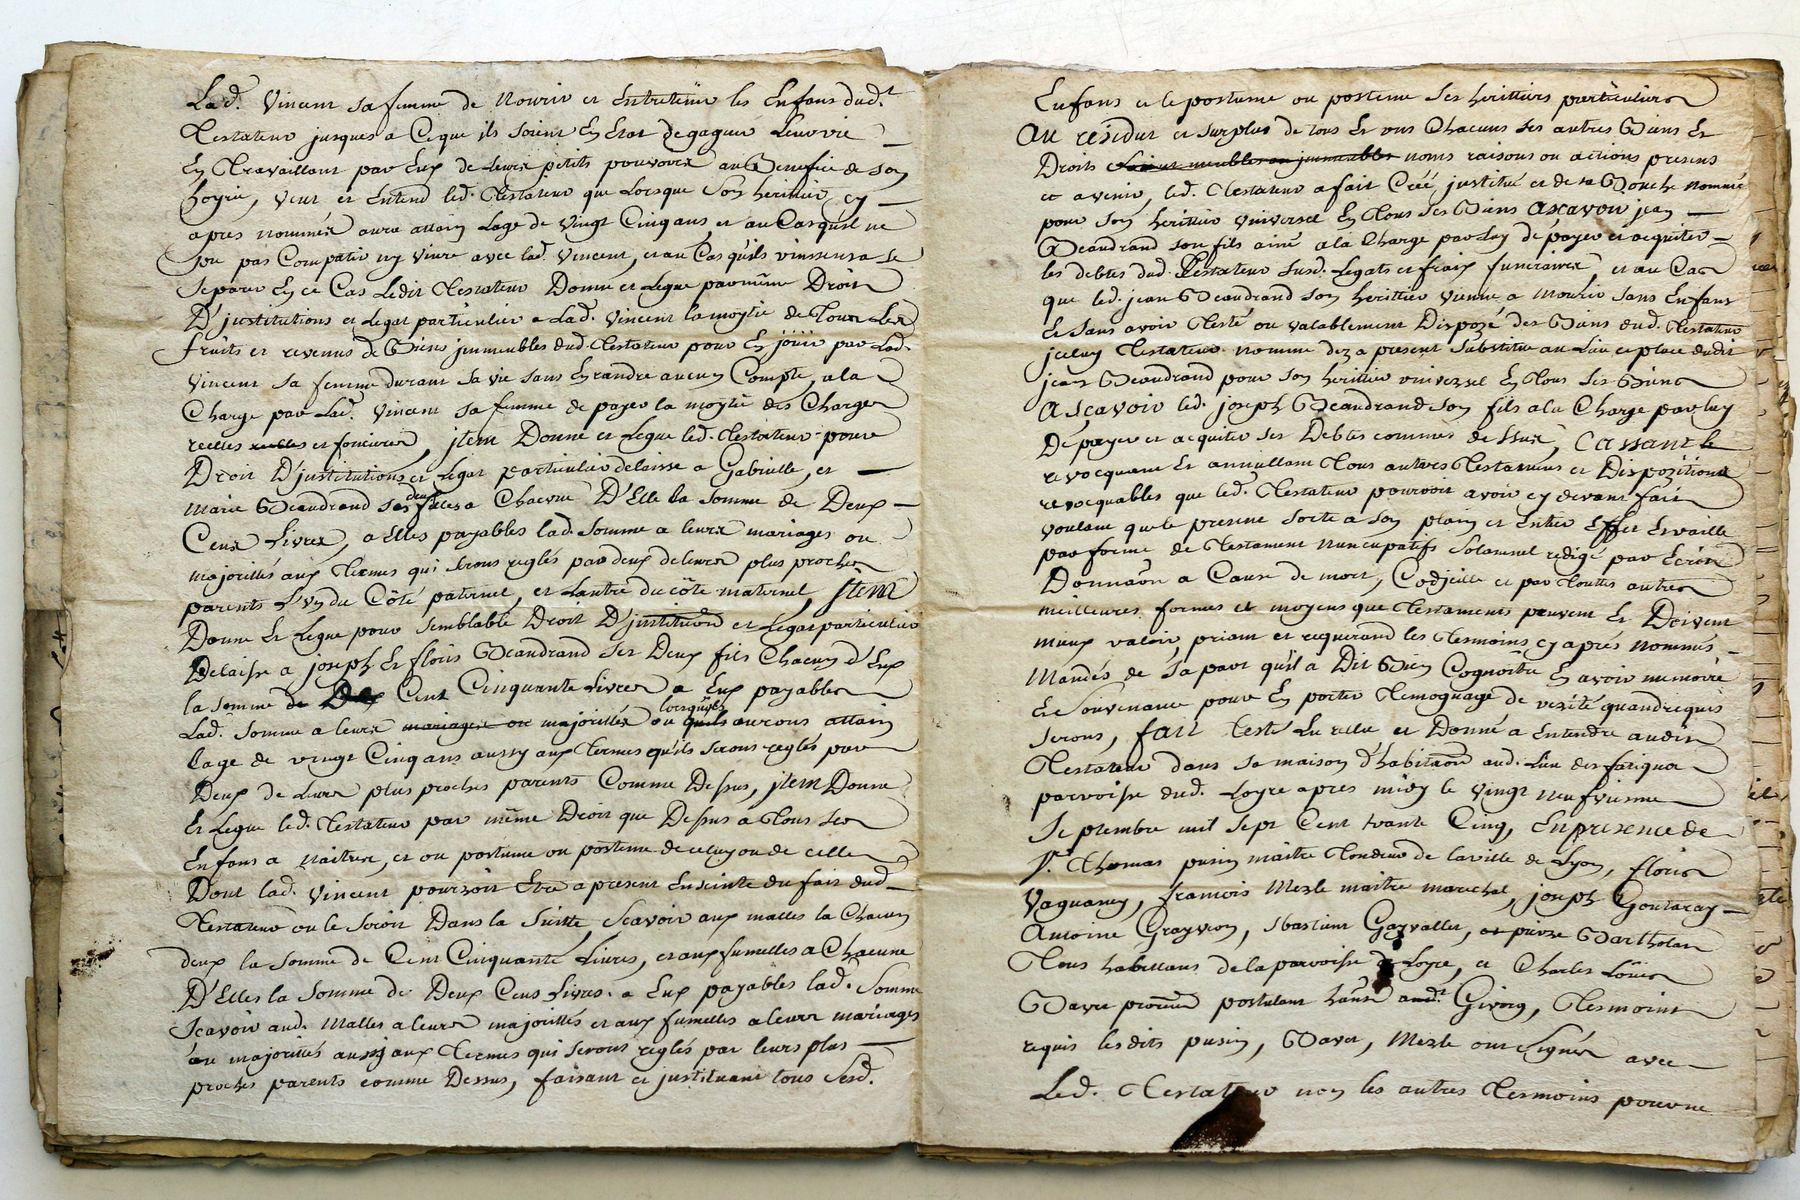 Lad. Vincent sa femme de nourir et Entretenir les Enfans dud.t
Testateur jusques a Ce que ils soient En Etat de gagner Leur vie
En Travaillant par Eux de leurs petits pouvoirs au Benefice de son
hoyrie, veut et Entend led. Testateur que Lorsque Son heritier cy
apres nommé aura attain Lage de Vingt Cinq ans, et au Cas quil ne
pas Compatir ny vivre avec lad. Vincent, et au Cas quils vinssent a se
Separer En ce Cas Ledit Testateur Donne et Legue par même Droit
D'justitutions et Legat particulier a Lad. Vincent la moytié de Tous Les
fruits et revenus de Biens jmmeubles dud. Testateur pour En jouir par Lad.
Vincent sa femme durant sa vie sans En randre aucun Compte, a la
Charge par Lad. Vincent sa femme de payer la moytié des Charges
reelles et foncieres, jtem Donne et Legue led. Testateur pour
Droit D'justitutions et Legat particulier delaisse a Gabrielle, et
Marie Beaudrand ses deux filles a Chacune D'Elle la Somme de Deux
Cens Livres, a Elles payables lad. Somme a leurs mariages ou
majorittés aux Termes qui Seront reglés par deux de leurs plus proches
parents L'un du Côté paternel, et Lautre du côté maternel, jtem
Donne Et Legue pour Semblable Droit D'justitution et Legat particulier
Delaisse a joseph Et floris Beaudrand Ses Deux fils Chacun d'Eux
la Somme de Cent Cinquante Livres a Eux payables
Lad. Somme a leurs mariages ou majorittés ou lorsqu'ils auront attain
Lage de vingt Cinq ans aussy aux Termes qu'ils Seront reglés par
Deux de Leurs plus proches parents Comme Dessus, jtem Donne
Et Legue led. Testateur par même Droit que Dessus a Tous Ses
Enfans a Naitre, et ou postume ou posteme de celuy ou de celle
Dont lad. Vincent pourroit Etre a present Enceinte du fait dud.
Testateur ou le Seroit Dans la Suitte, Scavoir aux malles la Chacun
deux la Somme de Cent Cinquante Livres, et aux fumelles a Chacune
D'Elles la Somme de Deux Cens Livres. a Eux payables lad. Somme
Scavoir aud. Malles a leurs majorittés et aux fumelles a leurs mariages
ou majorittés aussy aux Termes qui Seront reglés par leurs plus
proches parents comme Dessus, faisant et justituant tous Sesd.
Enfans et le postume ou posteme Ses herittiers particuliers
Au residut et Surplus de tous Et uns Chacuns Ses autres Biens Et
Droits soient meubles ou jmmeubles noms raisons ou actions presens
et avenir, led. Testateur a fait Créé, justitué et de sa Bouche nommé
pour Son herittier universel En Tous Ses Biens Ascavoir jean
Beaudrand son fils ainé a la Charge par Luy de payer et acquiter
les debtes dud. Testateur Susd. Legats et fraix funeraires, et au Cas
que led. jean Beaudrand Son herittier vienne a Mourir sans Enfans
Et Sans avoir Testé ou valablement Disposé des Biens dud. Testateur
jceluy Testateur nomme dez a present Substitue au Lieu et place dudit
jean Beaudrand pour Son herittier universel En Tous Ses Biens
Ascavoir led. joseph Beaudrand Son fils a la Charge par luy
De payer et acquiter Ses Debtes comme dessus, Cassant le
revocquant Et annullant Tous autres Testaments et Dispozitions
revocquables que led. Testateur pourroit avoir cy devant fait
voulant que le presens Sorte a Son plain et Entier Effet Et vaille
par forme de Testament nuncupatifs Solamnel redigé par Ecrit
Donnaõn a Cause de mort, Codjcille et par Touttes autres
meilleures formes et moyens que Testaments peuvent Et Doivent
mieux valoir, priant et requerand les Tesmoins cy aprés nommés
Mandés de Sa part qu'il a Dit Bien Cognoitre En avoir memoire
Et Souvenance pour En porter Temognage de verité quand requis
Seront, fait testé Lu relu et Donné a Entendre audit
Testateur dans Sa maison d'habitaõn aud. Lieu des fatigua
parroisse dud. Loyre apres midy le Vingt neufvieme
Septembre mil Sept Cent trante Cinq, En presence de
Sr. Thomas pusin maitre Tondeur de la ville de Lyon, floris
Vaganay, francois Mezle maitre marechal, joseph Goutaray
Antoine Grayvon, Sbastient Gayvallet, et pierre Bartholat
Tous habittans de la parroisse de Loyre, et Charles Louis
Bavre procureur postulant Givors, Tesmoins
requis lesdits pusin, Bavet, Mezle ont Signés avec
Led. Testateur non les autres Tesmoins pour ne